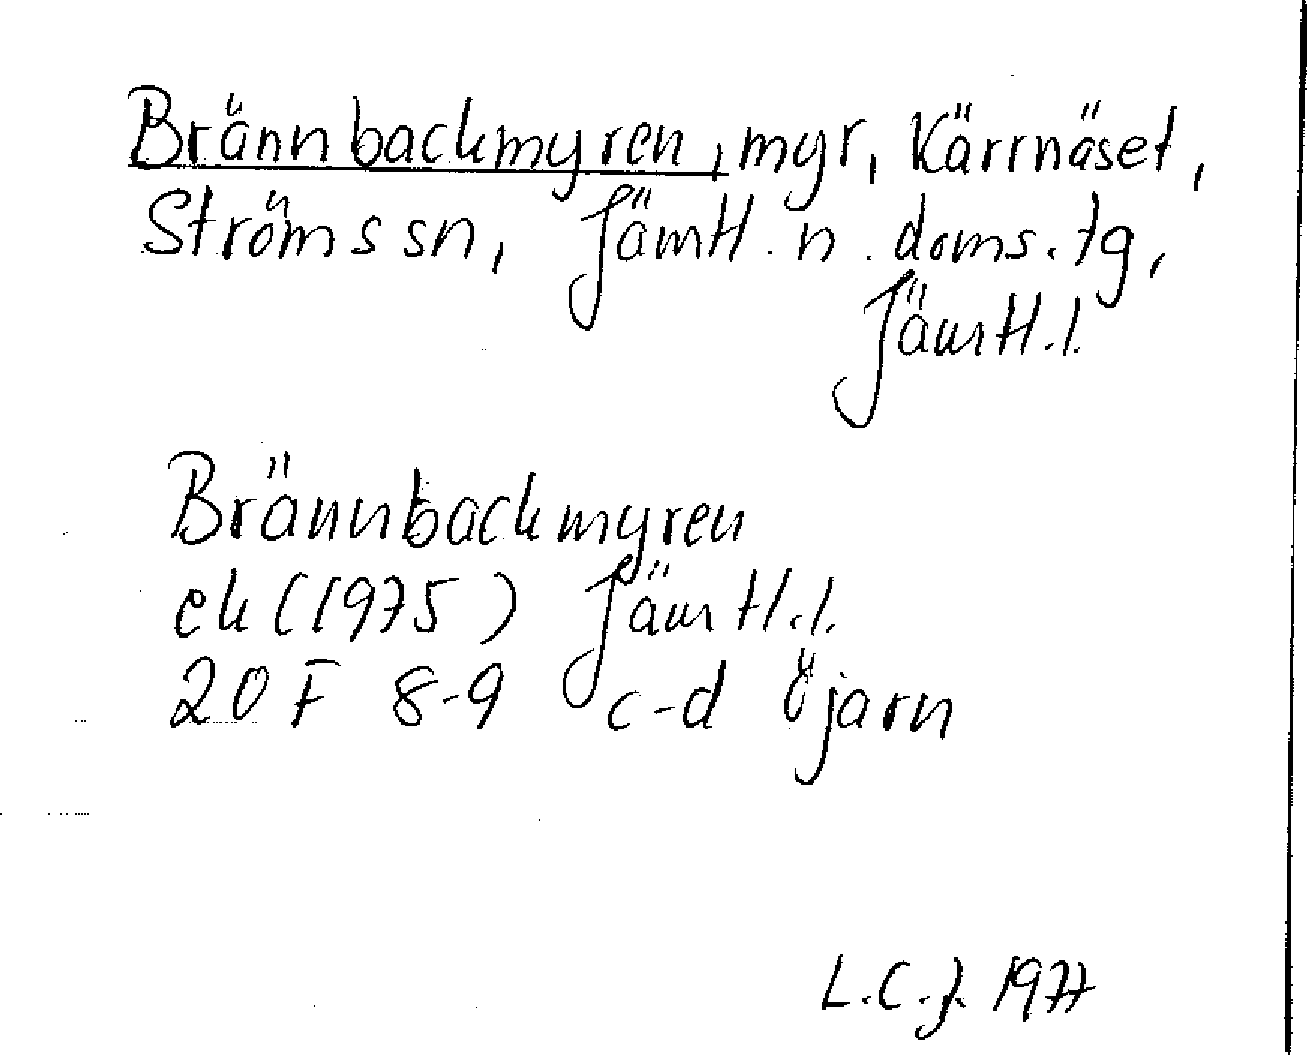 Brännbackmyren, myr, Kärrnäset,
Ströms sn, Jämtl. n. doms. tg,
Jämtl. l.
Brännbackmyren
ek (1975) Jämtl. l.
20 F 8-9 c-d Öjarn
L.C.J. 1977